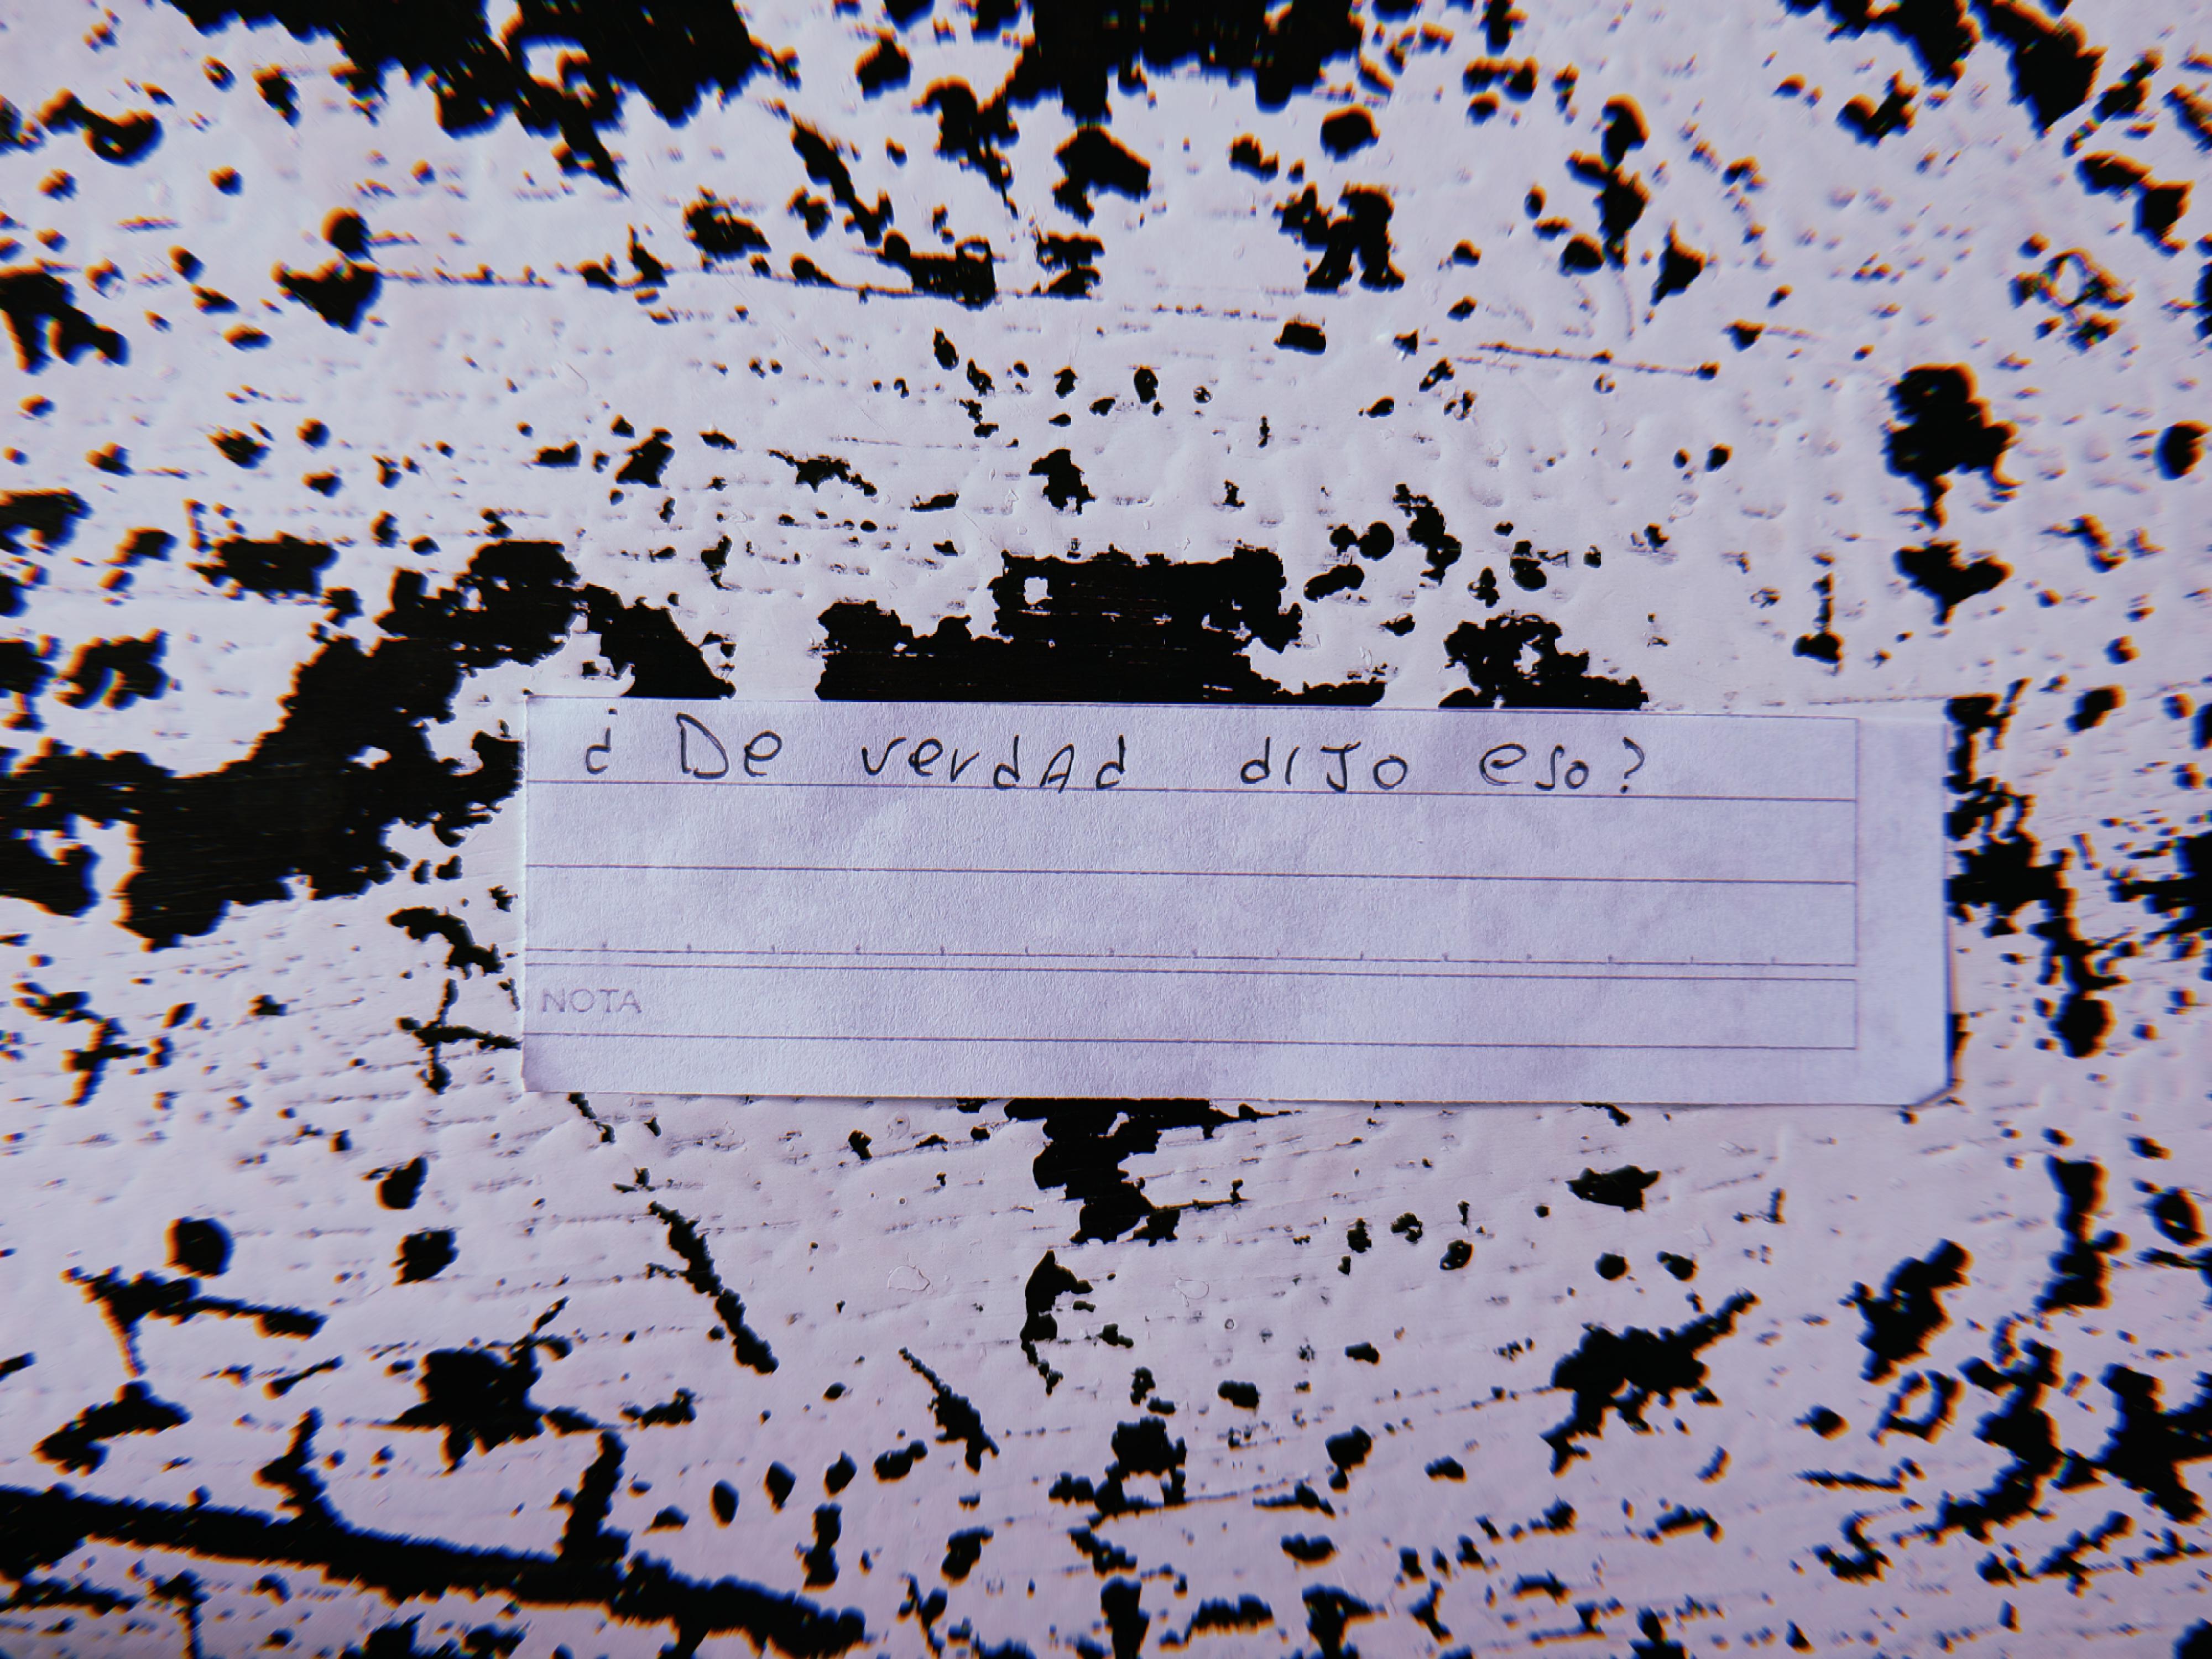 ¿ De verdAd diJo eso?
NOTA